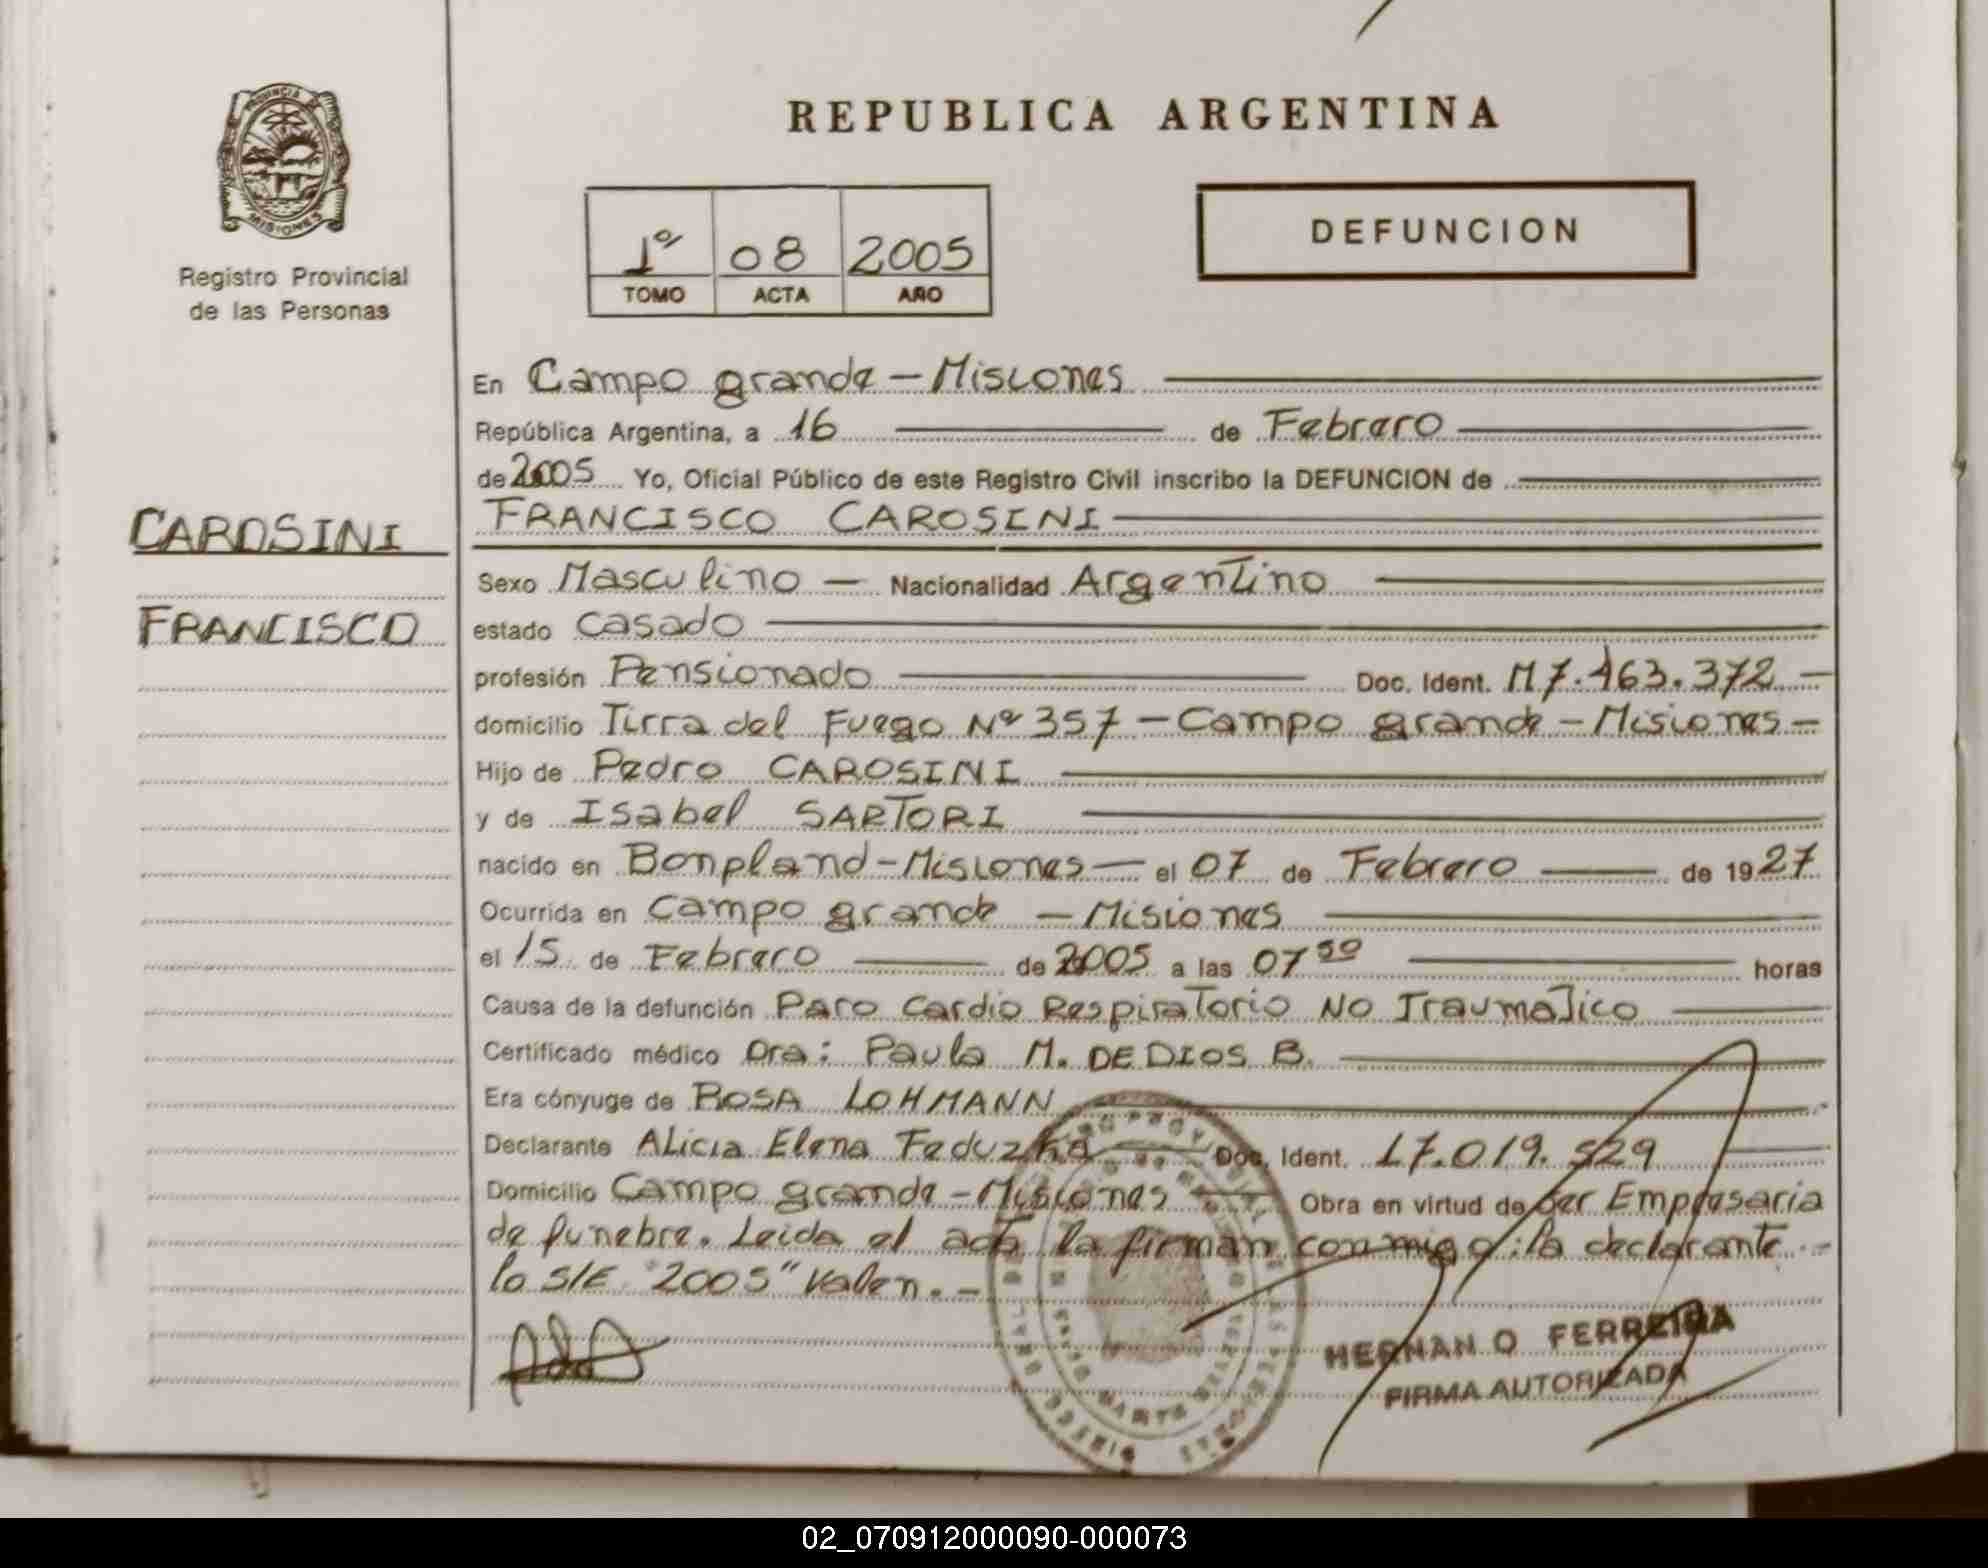 REPUBLICA ARGENTINA
PROVINCIA DE
MISIONES
Registro Provincial
de las Personas
1º 08 2005
TOMO ACTA AÑO
DEFUNCION
CAROSINI
FRANCISCO
En Campo grande – Misiones
República Argentina, a 16 de Febrero
de 2005 Yo, Oficial Público de este Registro Civil inscribo la DEFUNCION de
FRANCISCO CAROSINI
Sexo Masculino — Nacionalidad Argentino
estado casado
profesión Pensionado Doc. Ident. M 7.463.372 —
domicilio Tirra del Fuego Nº 357 – Campo grande – Misiones –
Hijo de Pedro CAROSINI
y de Isabel SARTORI
nacido en Bonpland – Misiones — el 07 de Febrero de 1927
Ocurrida en Campo grande – Misiones
el 15 de Febrero de 2005 a las 07 horas
Causa de la defunción Paro Cardio Respiratorio No Traumatico
Certificado médico Dra: Paula M. DE DIOS B.
Era cónyuge de ROSA LOHMANN
Declarante Alicia Elena Feduzka Doc. Ident. 17.019.529
Domicilio Campo grande – Misiones Obra en virtud de ser Empresaria
de funebre. Leida el acta la firman conmigo: la declarante –
lo S/E "2005" Valen. –
HERNAN O FERREIRA
FIRMA AUTORIZADA
02_070912000090-000073